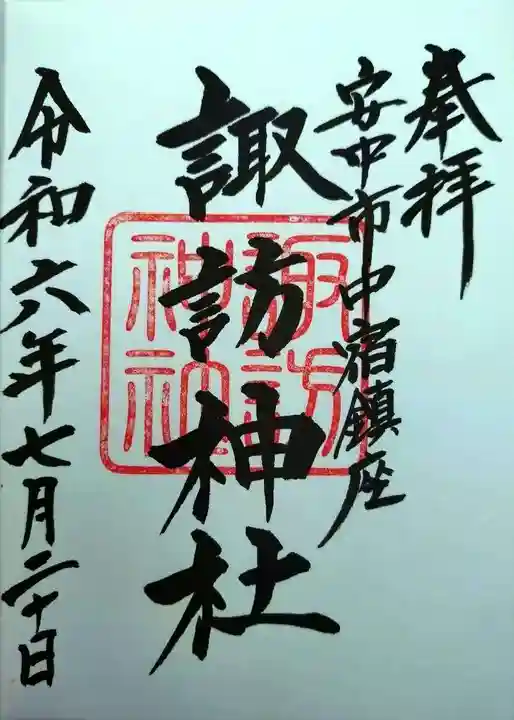 奉拝
安中市中宿鎮座
諏訪神社
諏訪
神社
令和六年七月二十日